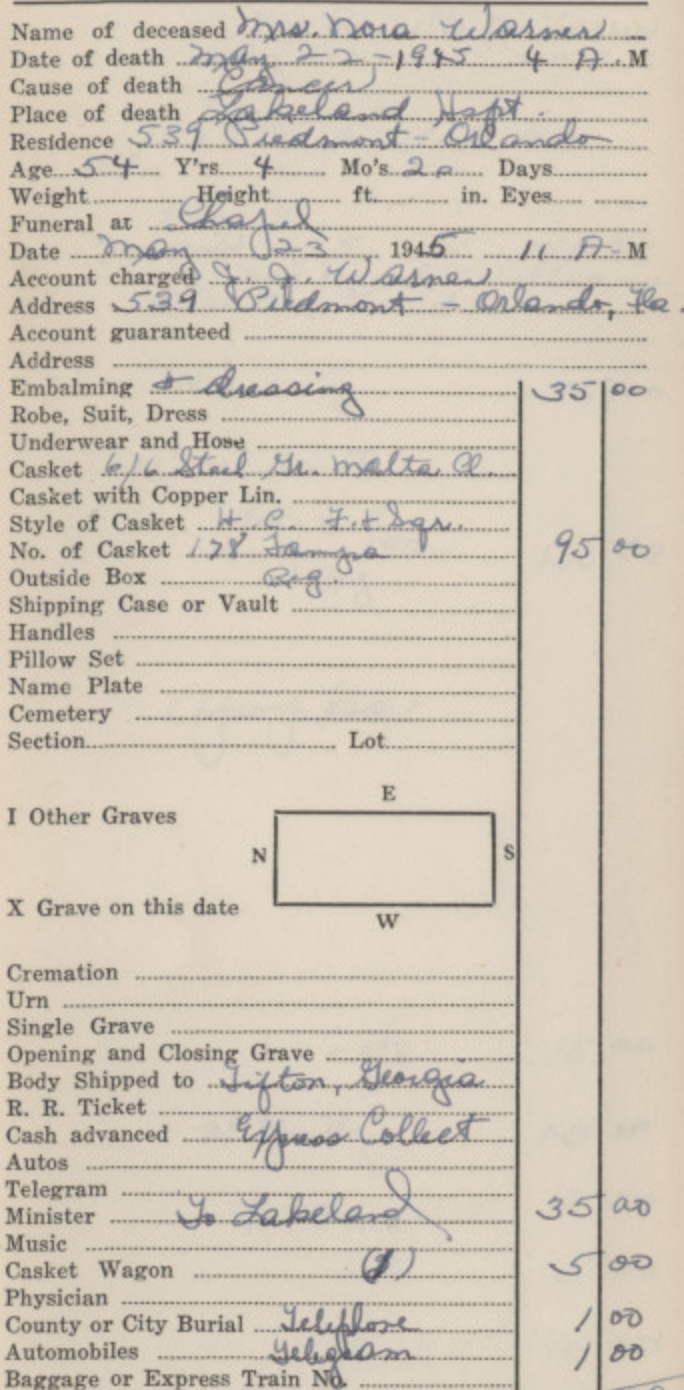 Name of deceased Mrs. Nora Warner
Date of death May 22-1945 4 A.M
Cause of death Cancer
Place of death Lakeland Hspt.
Residence 539 Piedmont - Orlando
Age 54 Y'rs 4 Mo's 20 Days
Weight Height ft. in. Eyes
Funeral at Chapel
Date May 23, 1945 11 A-M
Account charged J. J. Warner
Address 539 Piedmont - Orlando, Fla.
Account guaranteed
Address
Embalming & dressing 35 00
Robe, Suit, Dress
Underwear and Hose
Casket 6/6 Steel Gr. Malta Cl.
Casket with Copper Lin.
Style of Casket H. C. F. + Sqr.
No. of Casket 178 Tampa 95 00
Outside Box Reg.
Shipping Case or Vault
Handles
Pillow Set
Name Plate
Cemetery
Section Lot
E
I Other Graves
N S
X Grave on this date
W
Cremation
Urn
Single Grave
Opening and Closing Grave
Body Shipped to Tifton, Georgia
R. R. Ticket
Cash advanced Express Collect
Autos
Telegram
Minister To Lakeland 35 00
Music
Casket Wagon 5 00
Physician
County or City Burial Telephone 1 00
Automobiles Telegram 1 00
Baggage or Express Train No.